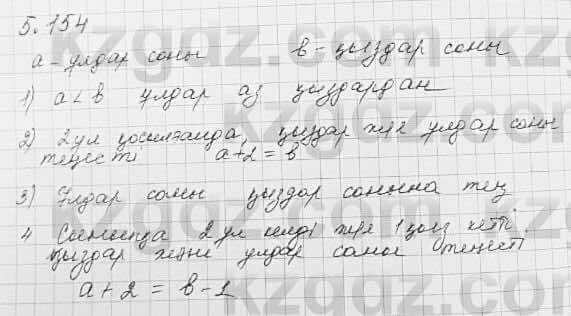 5.154
а - ұлдар соны   в - қыздар соны
1) а < в ұлдар аз қыздардан
2) 2 ұл қосылғанда, қыздар мен ұлдар соны
теңесті   а + 2 = в
3) Ұлдар соны қыздар сонына тең
4 Сыныпқа 2 ұл келді және 1 қыз кетті.
Қыздар және ұлдар соны теңесті
а + 2 = в - 1
kzgdz.com